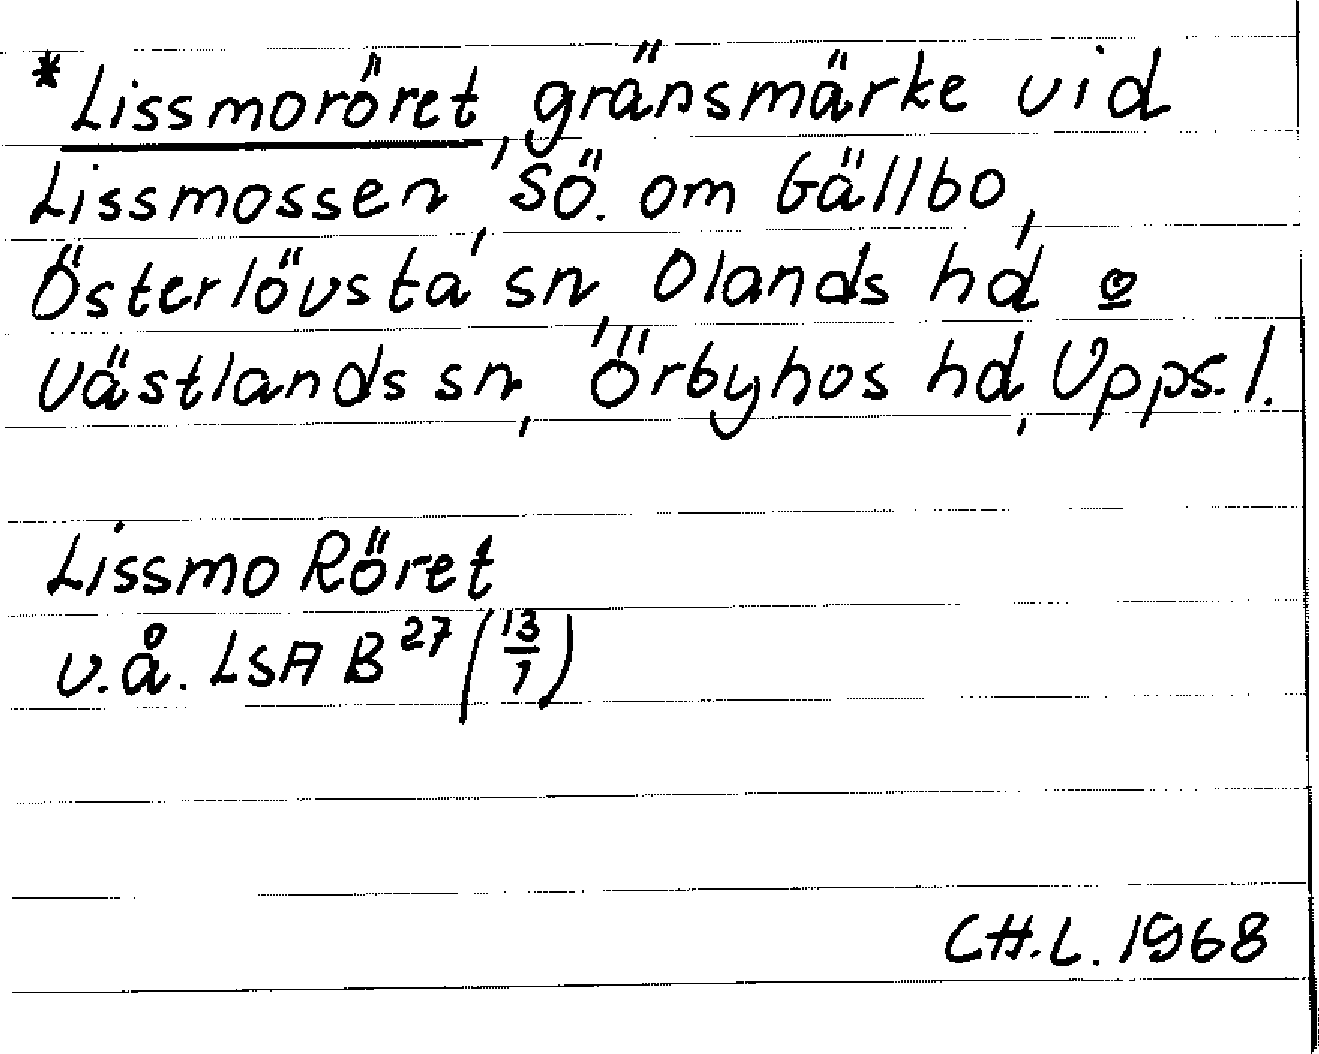 *Lissmoröret, gränsmärke vid
Lissmossen, SÖ. om Gällbo,
Österlövsta sn, Olands hd o
Västlands sn, Örbyhus hd, Upps. l.
Lissmo Röret
u.å. LSA B 27 (13/1)
CH.L. 1968